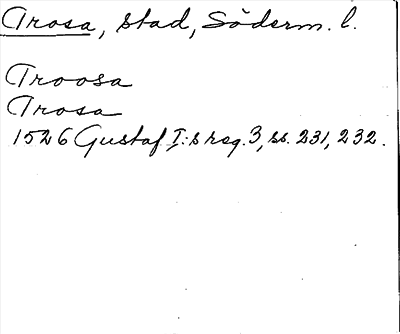 Trosa, stad, Söderm. l.
Troosa
Trosa
1526 Gustaf I:s reg. 3, ss. 231, 232.